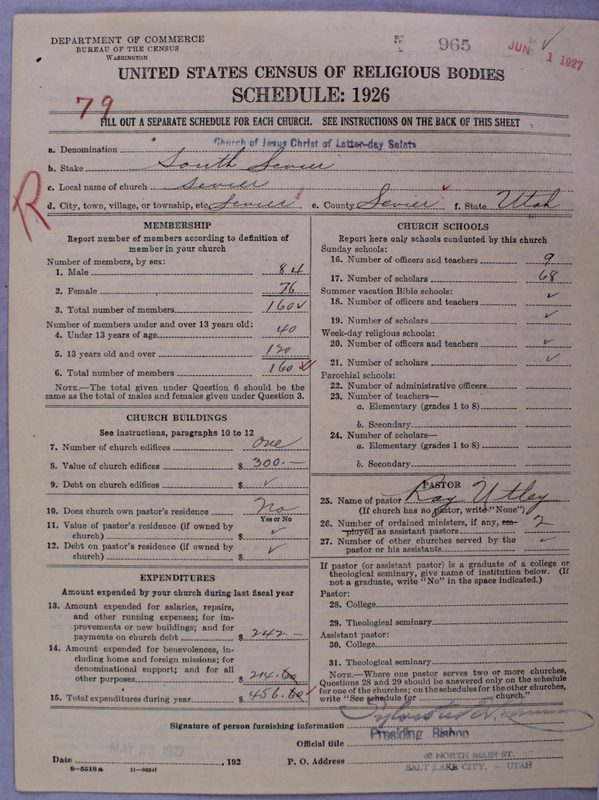 DEPARTMENT OF COMMERCE
BUREAU OF THE CENSUS
WASHINGTON
965
JUN 1 1927
UNITED STATES CENSUS OF RELIGIOUS BODIES
SCHEDULE: 1926
79
FILL OUT A SEPARATE SCHEDULE FOR EACH CHURCH. SEE INSTRUCTIONS ON THE BACK OF THIS SHEET
a. Denomination Church of Jesus Christ of Latter-day Saints
b. Stake South Sevier
c. Local name of church Sevier
d. City, town, village, or township, etc. Sevier e. County Sevier f. State Utah
R
MEMBERSHIP
Report number of members according to definition of
member in your church
Number of members, by sex:
1. Male 84
2. Female 76
3. Total number of members 160
Number of members under and over 13 years old:
4. Under 13 years of age 40
5. 13 years old and over 120
6. Total number of members 160
NOTE.—The total given under Question 6 should be the
same as the total of males and females given under Question 3.
CHURCH BUILDINGS
See instructions, paragraphs 10 to 12
7. Number of church edifices one
8. Value of church edifices $ 300.—
9. Debt on church edifices $ ✓
10. Does church own pastor's residence? No
Yes or No
11. Value of pastor's residence (if owned by
church) $ ✓
12. Debt on pastor's residence (if owned by
church) $ ✓
EXPENDITURES
Amount expended by your church during last fiscal year
13. Amount expended for salaries, repairs,
and other running expenses; for im-
provements or new buildings; and for
payments on church debt $ 242.—
14. Amount expended for benevolences, in-
cluding home and foreign missions; for
denominational support; and for all
other purposes $ 214.60
15. Total expenditures during year $ 456.60
CHURCH SCHOOLS
Report here only schools conducted by this church
Sunday schools:
16. Number of officers and teachers 9
17. Number of scholars 68
Summer vacation Bible schools:
18. Number of officers and teachers ✓
19. Number of scholars ✓
Week-day religious schools:
20. Number of officers and teachers ✓
21. Number of scholars ✓
Parochial schools:
22. Number of administrative officers
23. Number of teachers—
a. Elementary (grades 1 to 8)
b. Secondary
24. Number of scholars—
a. Elementary (grades 1 to 8)
b. Secondary
PASTOR
25. Name of pastor Ray Utley
(If church has no pastor, write "None")
26. Number of ordained ministers, if any, em-
ployed as assistant pastors 2
27. Number of other churches served by the
pastor or his assistants ✓
If pastor (or assistant pastor) is a graduate of a college or
theological seminary, give name of institution below. (If
not a graduate, write "No" in the space indicated.)
Pastor:
28. College
29. Theological seminary
Assistant pastor:
30. College
31. Theological seminary
NOTE.—Where one pastor serves two or more churches,
Questions 28 and 29 should be answered only on the schedule
for one of the churches; on the schedules for the other churches,
write "See schedule for church."
Signature of person furnishing information
Official title Presiding Bishop
Date MAY 25 1927, 192 P. O. Address 40 NORTH MAIN ST.
SALT LAKE CITY, - UTAH
8—5518 a